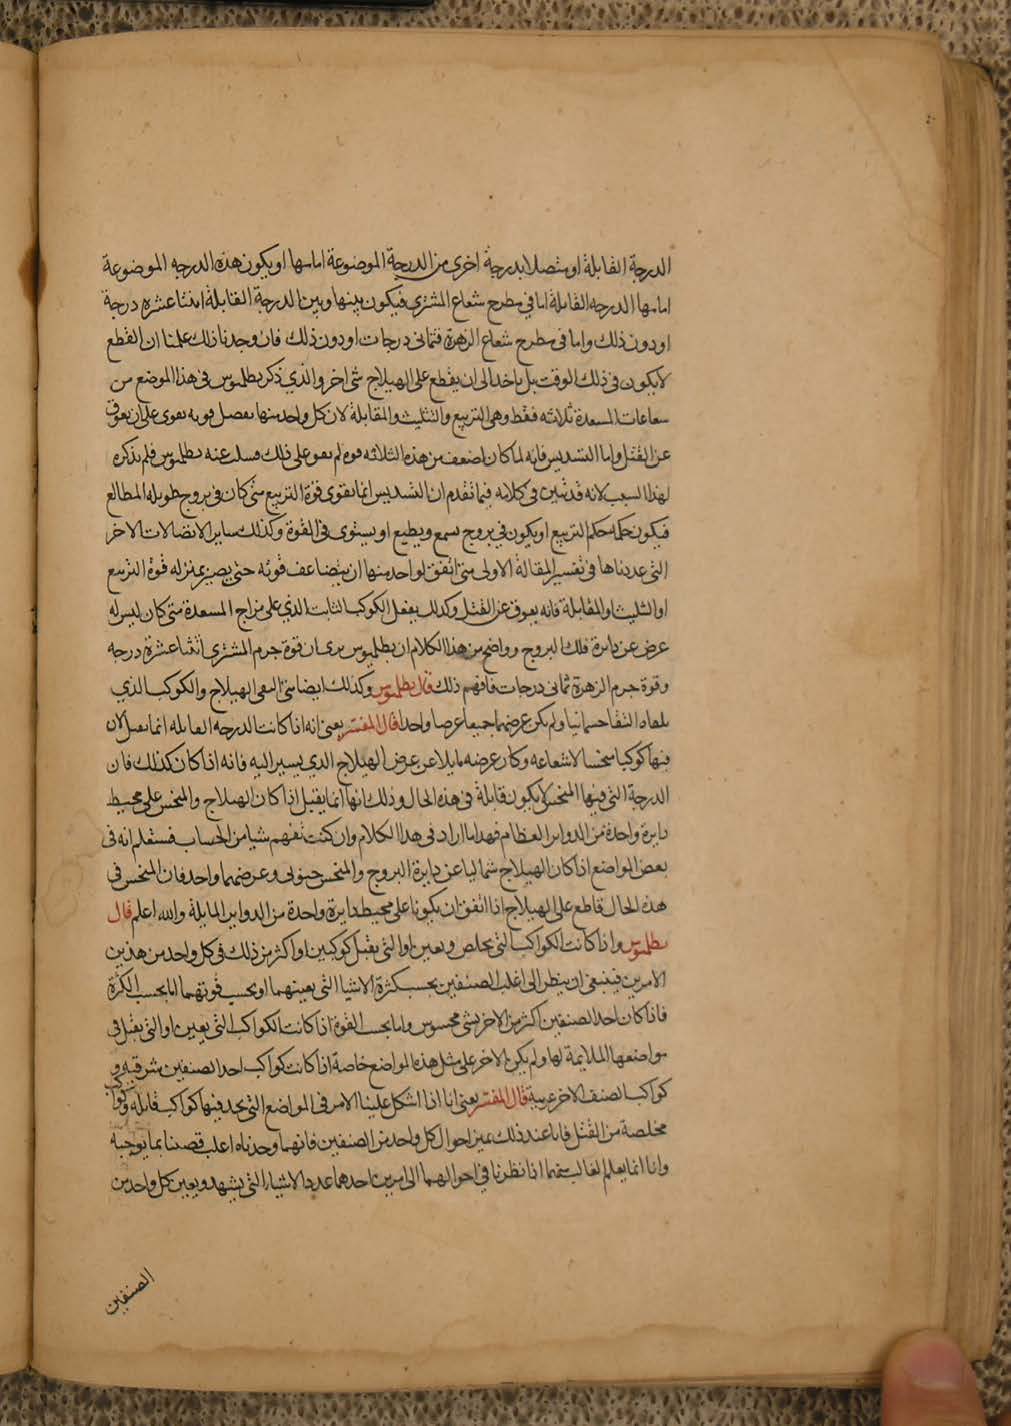 الدرجة القابلة او متصلا بدرجة اخرى من الدرجة الموضوعة امامها او يكون هذه الدرجه الموضوعة
امامها الدرجه القابلة اما في مطرح شعاع المشترى فيكون بينها وبين الدرجة القابلة اثنتا عشره درجة
او دون ذلك واما فى مطرح شعاع الزهرة فثمانى درجات او دون ذلك فان وجدنا ذلك علمنا ان القطع
لا يكون فى ذلك الوقت بل ياخد الى ان يقطع على الهيلاج شى اخر والذي ذكر بطلميوس فى هذا الموضع من
شعاعات المسعدة ثلاثه فقط وهى التربيع والتثليث والمقابلة لان كل واحد منها بفضل قوته يقوى على ان يعوق
عن القتل واما التسديس فانه لما كان اضعف من هذه الثلاثه قوه لم يقو على ذلك فسكت عنه بطلميوس فلم يذكره
لهذا السبب لانه قد تبين فى كلامه فيما تقدم ان التسديس انما يقوى قوة التربيع متى كان فى بروج طويله المطالع
فيكون حكمه حكم التربيع او يكون في بروج تسمع ويطيع او يستوى فى القوة وكذلك ساير الاتصالات الاخر
التى عددناها فى تفسير المقالة الاولى متى اتفق لواحد منها ان يتضاعف قوته حتى يصير بمنزله قوة التربيع
او التثليث والمقابلة فانه يعوق عن القتل وكذلك يفعل الكوكب الثابت الذي على مزاج المسعدة متى كان ليس له
عرض عن دايرة فلك البروج وواضح من هذا الكلام ان بطلميوس يرى ان قوة جرم المشترى اثنتا عشرة درجه
وقوة جرم الزهرة ثمانى درجات فافهم ذلك قال بطلميوس وكذلك ايضا متى التقى الهيلاج والكوكب الذي
يلقاه التقا جسمانيا ولم يكن عرضهما جميعا عرضا واحدا قال المفسر يعنى انه اذا كانت الدرجه القابله انما تقتل لان
فيها كوكبا منحسا لا شعاعه وكان عرضه مايلا عن عرض الهيلاج الذي يسير اليه فانه اذا كان كذلك فان
الدرجة التى فيها المنحس لا يكون قابلة فى هذه الحال وذلك انها انما يقتل اذا كان الهيلاج والمنحس على محيط
دايرة واحدة من الدواير العظام فهذا ما اراد فى هذا الكلام وان كنت تفهم شيا من الحساب فستعلم انه فى
بعض المواضع اذا كان الهيلاج شماليا عن دايرة البروج والمنحس جنوبى وعرضهما واحد فان المنحس فى
هذه الحال قاطع على الهيلاج اذا اتفق ان يكونا على محيط دايرة واحدة من الدواير المايلة والله اعلم قال
بطلميوس واذا كانت الكواكب التى يخلص ويعين او التى يقتل كوكبين او اكثر من ذلك فى كل واحد من هذين
الامرين فينبغى ان ينظر الى اغلب الصنفين بحسب كثرة الاشيا التى يعينهما او بحسب قوتهما اما بحسب الكثرة
فاذا كان احد الصنفين اكثر من الاخر بشى محسوس واما بحسب القوة اذا كانت الكواكب التى يعين او التى يقتل فى
مواضعها الملايمة لها ولم يكن الاخر على مثل هذه المواضع خاصة اذا كانت كواكب احد الصنفين مشرقيه و
كواكب الصنف الاخر غربية قال المفسر يعنى انا اذا اشكل علينا الامر فى المواضع التى نجد فيها كواكب قابله وكواكب
مخلصة من القتل فانا عند ذلك نميز احوال كل واحد من الصنفين فايهما وجدناه اغلب قضينا بما يوجبه
وانا انما يعلم الغالب منهما اذا نظرنا في احوالهما الى امرين احدهما عدد الاشيا التى يشهد ويعين كل واحد من
الصنفين